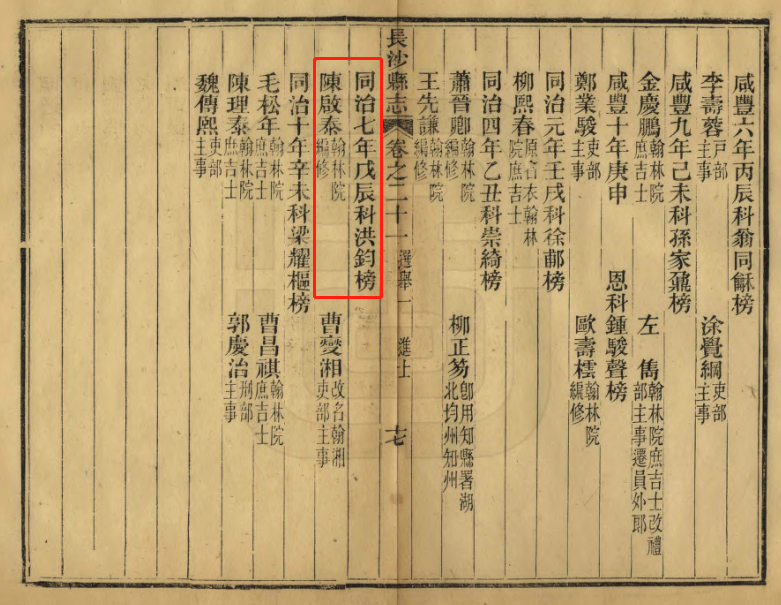 咸豐六年丙辰科翁同龢榜
李壽蓉戸部主事 涂覺綱吏部主事
咸豐九年己未科孫家鼐榜
金慶鵬翰林院庶吉士 左雋翰林院庶吉士改禮部主事遷員外郎
咸豐十年庚申 恩科鍾駿聲榜
鄭業駿吏部主事 歐壽樗翰林院編修
同治元年壬戌科徐郙榜
柳熙春原名衣翰林院庶吉士
同治四年乙丑科崇綺榜
蕭晉卿翰林院編修 柳正笏卽用知縣署湖北均州知州
王先謙翰林院編修
長沙縣志 卷之二十一 選舉一 進士 十七
同治七年戊辰科洪鈞榜
陳啟泰翰林院編修 曹燮湘改名翰湘吏部主事
同治十年辛未科梁耀樞榜
毛松年翰林院庶吉士 曹昌祺翰林院庶吉士
陳理泰翰林院庶吉士 郭慶治刑部主事
魏傳熙吏部主事